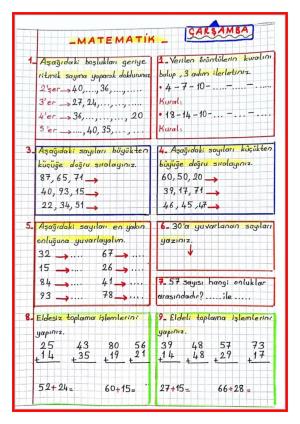 MATEMATİK
ÇARŞAMBA
1- Aşağıdaki boşlukları geriye
ritmik sayma yaparak doldurunuz.
2'şer → 40, ...., 36, ...., ....
3'er → 27, 24, ...., ...., ....
4'er → ...., 36, ...., ...., 20
5'er → ...., 40, 35, ...., ....
2- Verilen örüntülerin kuralını
bulup, 3 adım ilerletiniz.
• 4-7-10-....-....-....
Kural:
• 18-14-10-....-....-....
Kural:
3. Aşağıdaki sayıları büyükten
küçüğe doğru sıralayınız.
87, 65, 71 →
40, 93, 15 →
22, 34, 51 →
4. Aşağıdaki sayıları küçükten
büyüğe doğru sıralayınız.
60, 50, 20 →
39, 17, 71 →
46, 45, 47 →
5. Aşağıdaki sayıları en yakın
onluğuna yuvarlayalım.
32 → .... 67 → ....
15 → .... 26 → ....
84 → .... 41 → ....
93 → .... 78 → ....
6- 30'a yuvarlanan sayıları
yazınız.
7- 57 sayısı hangi onluklar
arasındadır? ..... ile .....
8- Eldesiz toplama işlemlerini
yapınız.
25 43 80 56
+14 +35 +19 +21
52+24= 60+15=
9- Eldeli toplama işlemlerini
yapınız.
39 48 57 73
+14 +48 +29 +17
27+15= 66+28=